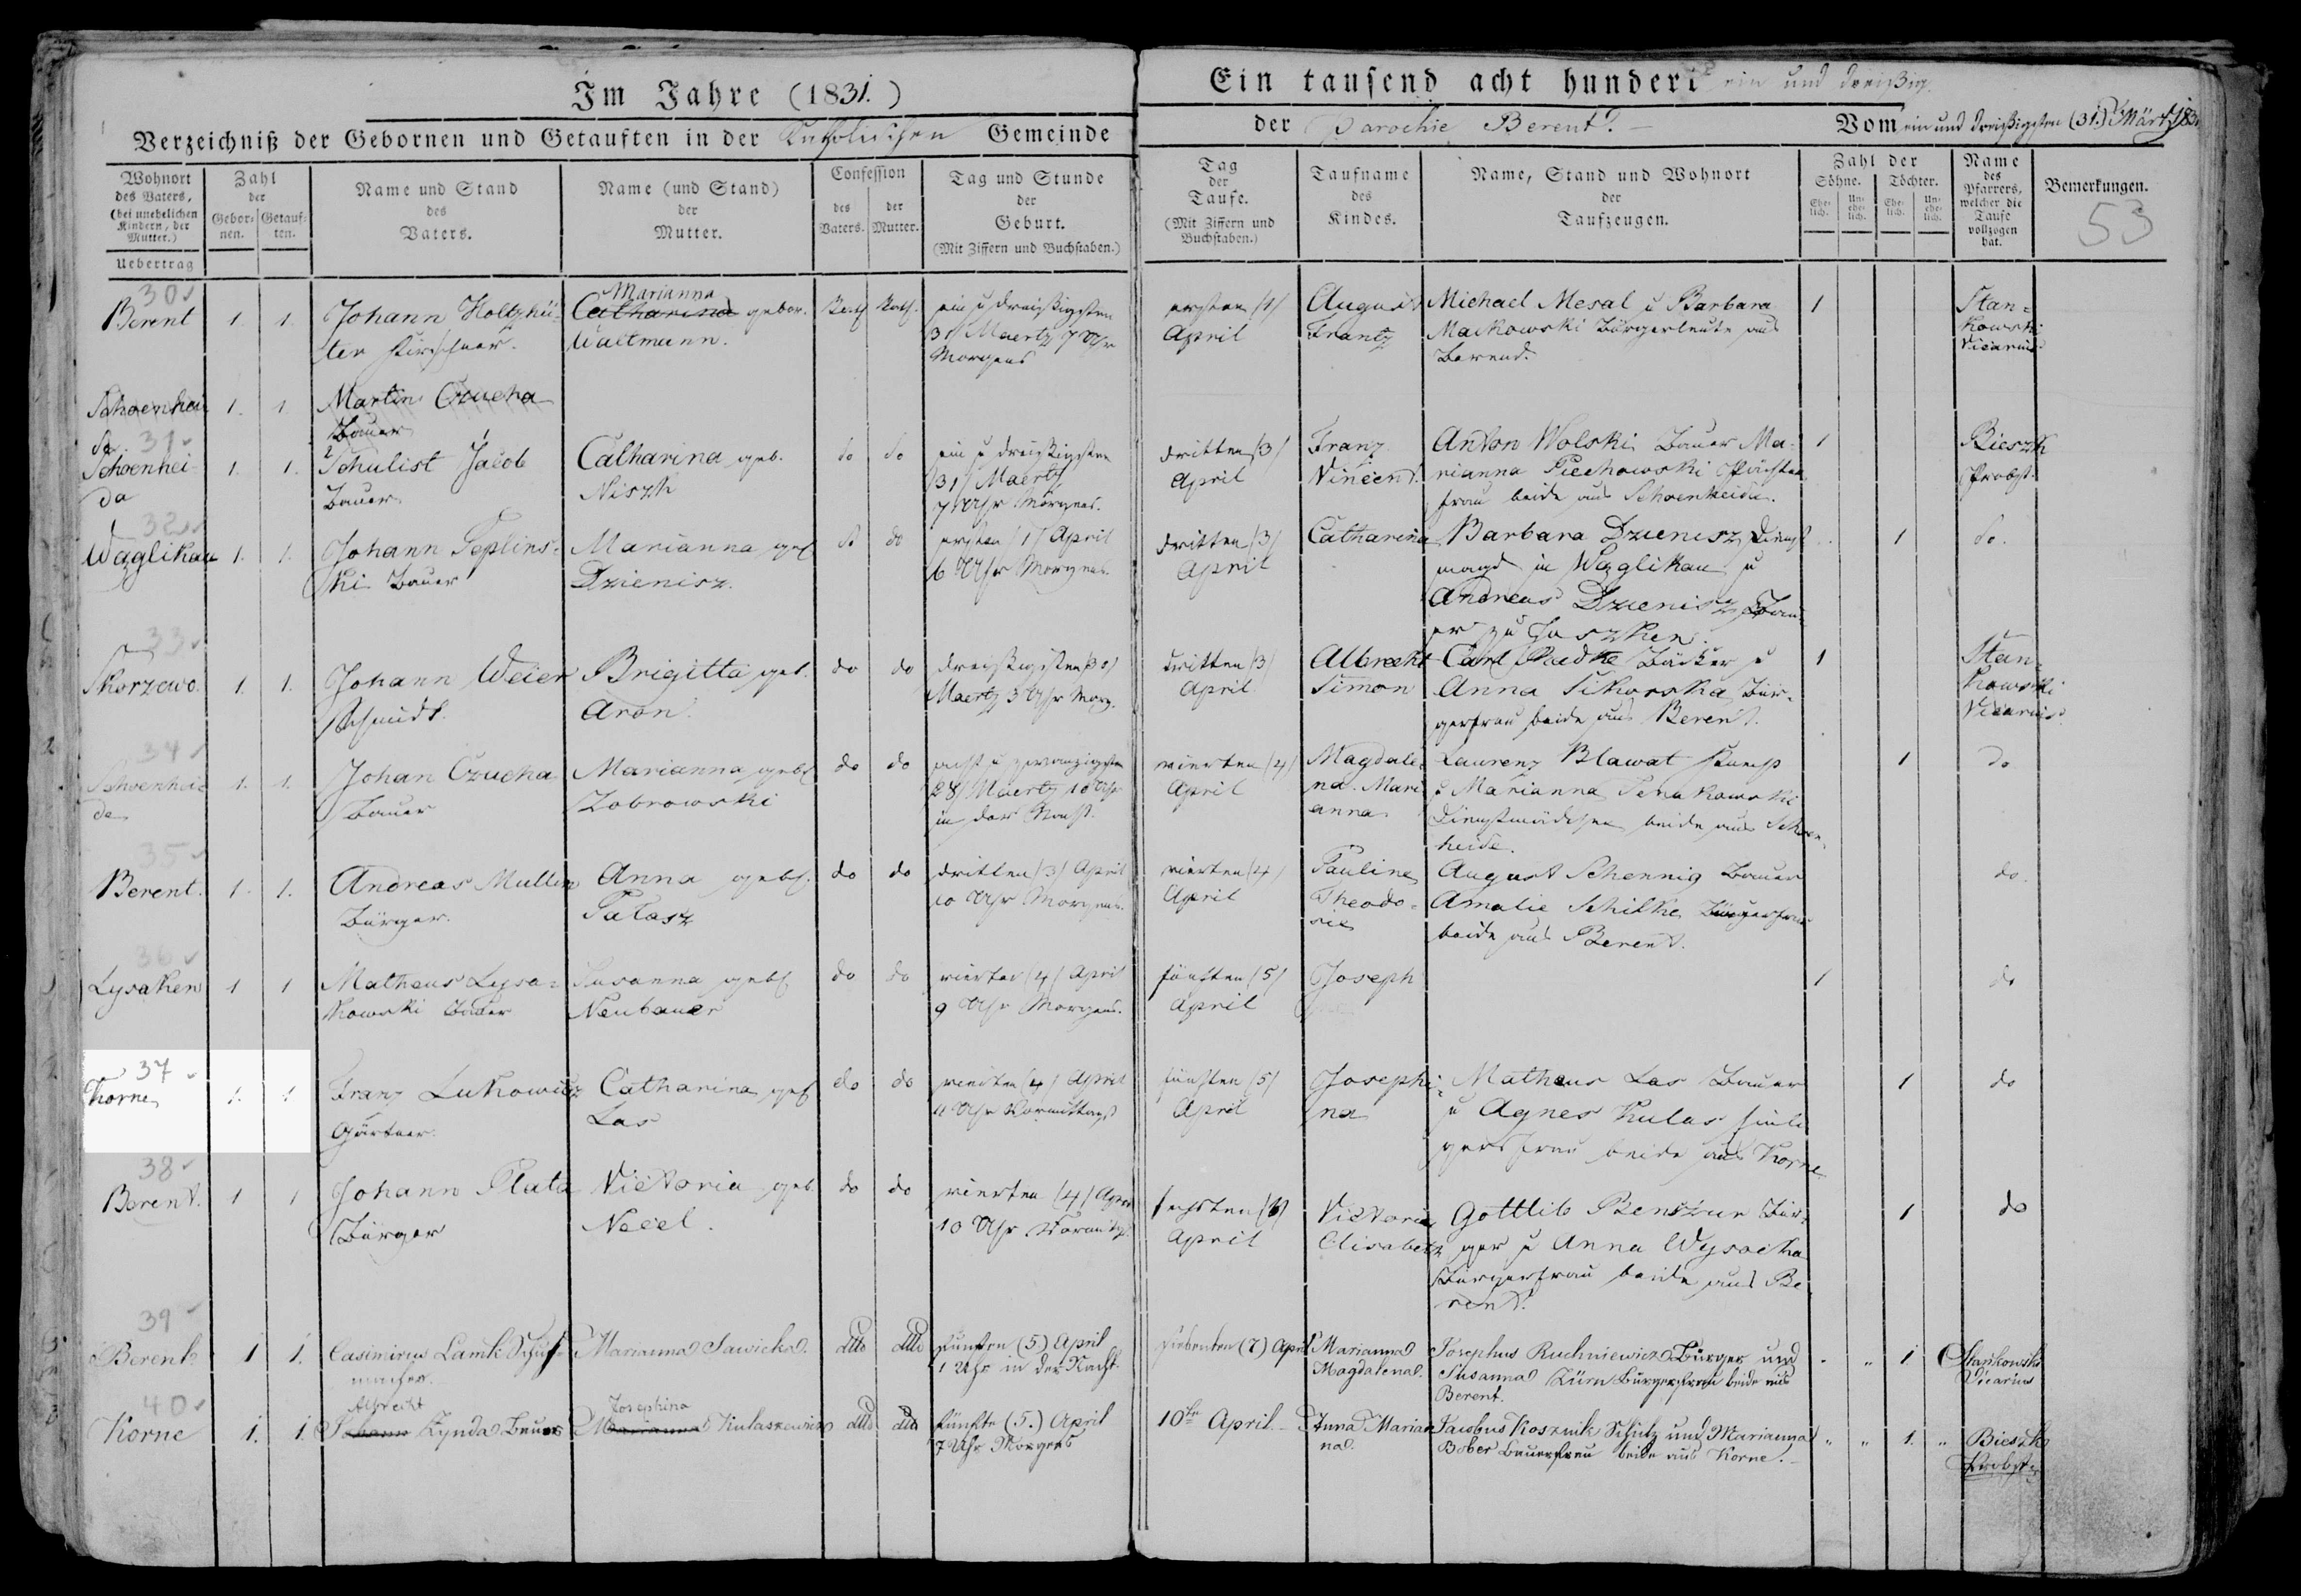 Im Jahre (1831.)
Verzeichniß der Gebornen und Getauften in der Katholischen Gemeinde
Wohnort
des Vaters,
(bei unehelichen
Kindern, der
Mutter.)
Zahl
der
Gebor-
nen.
Getauf-
ten.
Name und Stand
des
Vaters.
Name (und Stand)
der
Mutter.
Confession
des
Vaters.
der
Mutter.
Tag und Stunde
der
Geburt.
(Mit Ziffern und Buchstaben.)
Uebertrag
Ein tausend acht hundert ein und dreißig.
der Parochie Berent. Vom ein und dreißigsten (31.) Märtz 1831
Tag
der
Taufe.
(Mit Ziffern und
Buchstaben.)
Taufname
des
Kindes.
Name, Stand und Wohnort
der
Taufzeugen.
Zahl der
Söhne. Töchter.
Ehe-
lich.
Un-
ehe-
lich.
Ehe-
lich.
Un-
ehe-
lich.
Name
des
Pfarrers,
welcher die
Taufe
vollzogen
hat.
Bemerkungen.
53
30
Berent 1. 1.
Johann Holtzhü-
ter
Marianna
Catharina gebor.
Waltmann.
Kath. Kath.
ein u dreißigsten
31/ Maertz 7 Uhr
Morgens
ersten (1)
April
August
Frantz
Michael Mesal u Barbara
Markowski Bürgerleute aus
Berend.
1
Stan-
kowski
Vicarius
Schoenhei
da 1. 1.
Martin Czucha
Bauer
31
Schoenhei-
da 1. 1.
Schulist Jacob
Bauer
Catharina geb.
Niszk
do do
ein u dreißigsten
31/ Maertz
7 Uhr Morgens.
dritten /3/
April
Franz
Vincent.
Anton Wolski Bauer Ma-
rianna Piechowski
frau beide aus Schoenheide.
1
Bieszk
Probst.
32
Wazglikau 1. 1.
Johann Peplins-
ki Bauer
Marianna geb
Dzienisz.
do do
ersten /1/ April
6 Uhr Morgens.
dritten /3/
April
Catharina
Barbara Dzienisz Dienst
magd in Wazglikau u
Andreas Dzienisz Bau-
er zu
1
do.
33
Skorzewo. 1. 1.
Johann Weier
Schmidt.
Brigitta geb.
Aron.
do do
dreißigsten 30/
Maertz 3 Uhr Morg.
dritten /3/
April
Albrecht
Simon
Carl Radke Bäcker u
Anna Sikorska Bür-
gerfrau beide aus Berent.
1
Stan-
kowski
Vicarius
34
Schoenhei-
de 1. 1.
Johan Czucha
Bauer
Marianna geb.
Zobrowski
do do
acht u zwanzigsten
28/ Maertz 10 Uhr
in der Nacht.
vierten /4/
April
Magdale-
na. Mari
anna
Laurenz Blawat
u Marianna
Dienstmädchen beide aus Schoen-
heide.
1
do
35
Berent. 1. 1.
Andreas Muller
Bürger.
Anna geb.
Palasz
do do
dritten /3/ April
10 Uhr Morgens.
vierten /4/
April
Pauline
Theodo-
sie
August Schennig Bauer
Amalie Schilke Bürgerfrau
beide aus Berent.
do.
36
Lysaken 1 1
Matheus Lysa-
kowski Bauer
Susanna geb.
Neubauer
do do
vierten /4/ April
9 Uhr Morgens.
fünften /5/
April
Joseph
1
do
37
Korne 1. 1
Franz Lukowicz
Gärtner.
Catharina geb
Las
do do
vierten /4/ April
11 Uhr Vormittags
fünften /5/
April
Josephi-
na
Matheus Las Bauer
u Agnes Kulas
gersfrau beide aus Korne
1
do
38
Berent. 1 1
Johann Plata
Bürger
Victoria geb
Necel.
do do
vierten /4/ April
10 Uhr Vormittg.
sechsten /6/
April
Victoria
Elisabeth
Gottlib Bür-
ger u Anna Wysocka
Bürgerfrau beide aus Be
rent.
1
do
39
Berent 1 1.
Casimirus Lamk Schuh-
macher.
Marianna Sawicka.
ditto ditto
fünften (5) April
1 Uhr in der Nacht.
siebenten (7) April
Marianna
Magdalena.
Josephus Ruchniewicz Bürger und
Susanna Zürn Bürgersfrau beide aus
Berent.
1
Stankowski
Vicarius
40
Korne 1. 1.
Albrecht
Johann Zynda Bauer
Josephina
Marianna Kulaszewicz
ditto ditto
fünfte (5.) April
7 Uhr Morgens
10te April
Anna Marian
na.
Jacobus Kosznik Schulz und Marianna
Bober Bauersfrau beide aus Korne.
1.
Bieszk
Probst